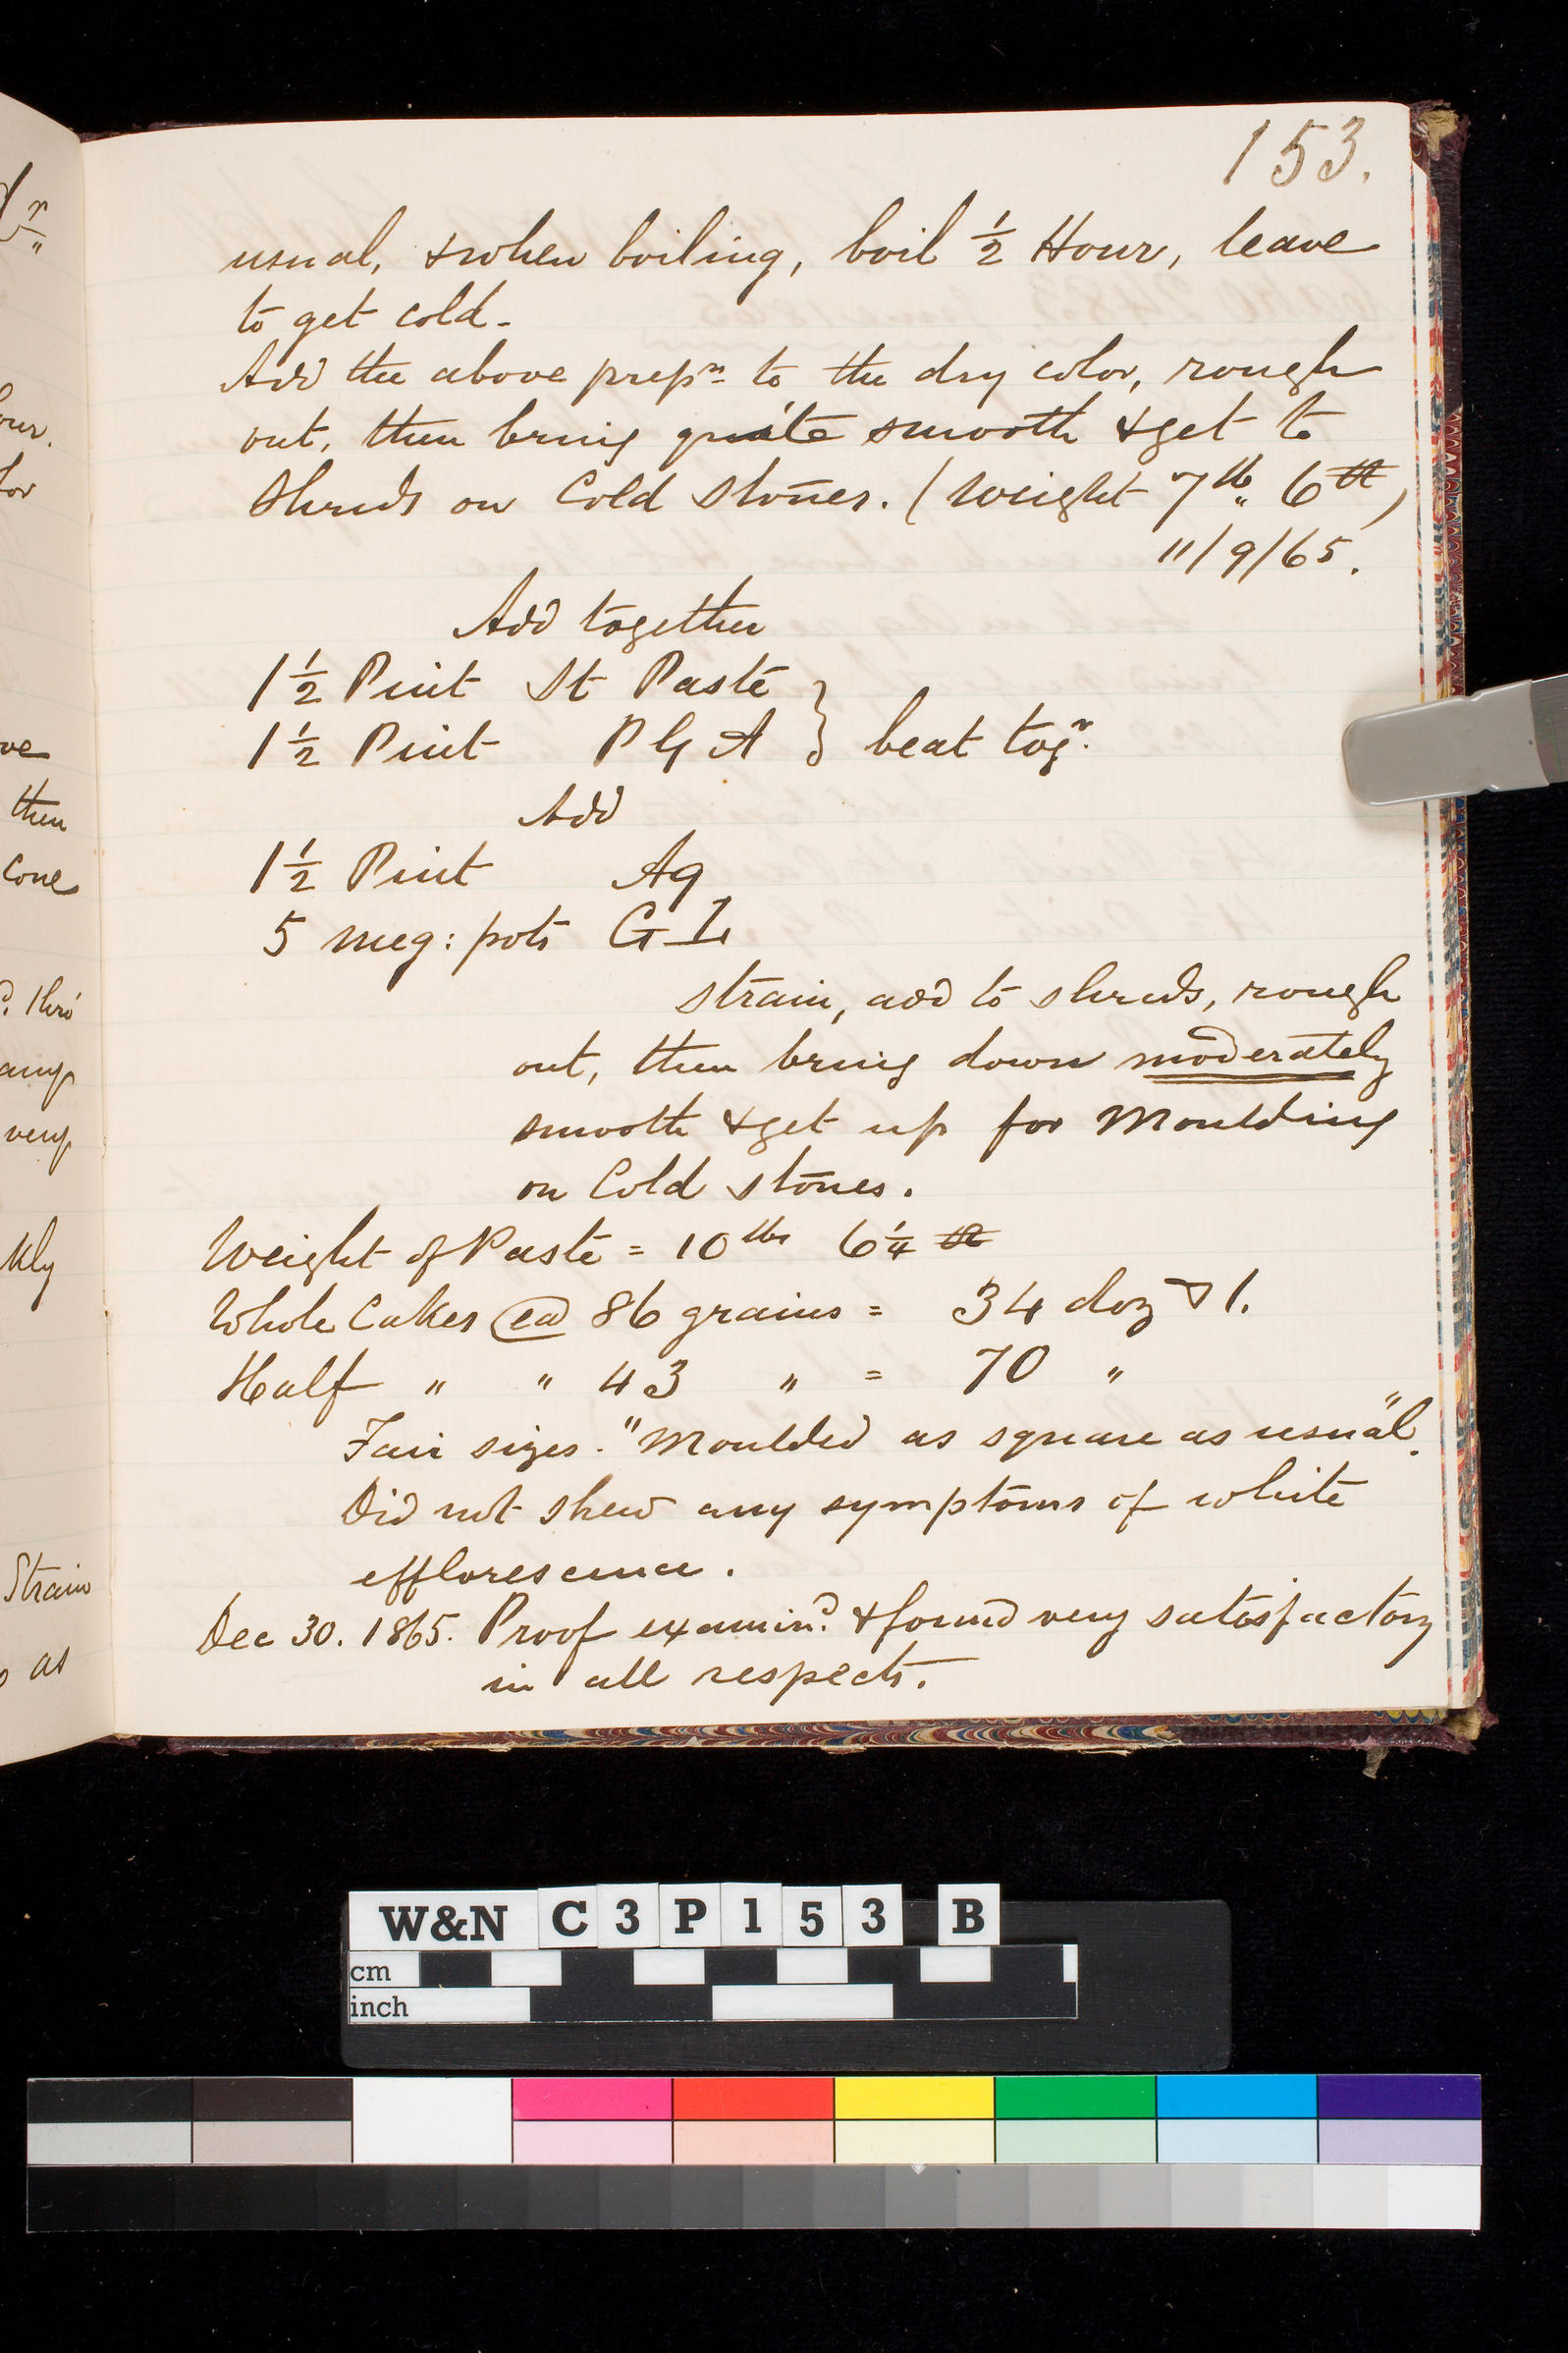 153.
usual, & when boiling, boil ½ Hour, leave
to get cold -
Add the above prepn to the dry color, rough
out, then bring quite smooth & get to
Shreds on Cold Stones. (Weight 7 lb 6
11/9/65.
Add together
1½ Pint St Paste
1½ Pint P G A } beat togr.
Add
1½ Pint Aq
5 meg: pots G I
strain, add to shreds, rough
out, then bring down moderately
smooth & get up for Moulding
on Cold stones.
Weight of Paste = 10 lbs 6¼
Whole Cakes ea 86 grains = 34 doz & 1.
Half " " 43 " = 70 "
Fair sizes. "Moulded as square as usual".
Did not shew any symptoms of white
efflorescence.
Dec 30. 1865. Proof examind. & found very satisfactory
in all respects.
our.
ve
then
cone
thro'
kly
Strain
as
W&N C3P153 B
cm
inch